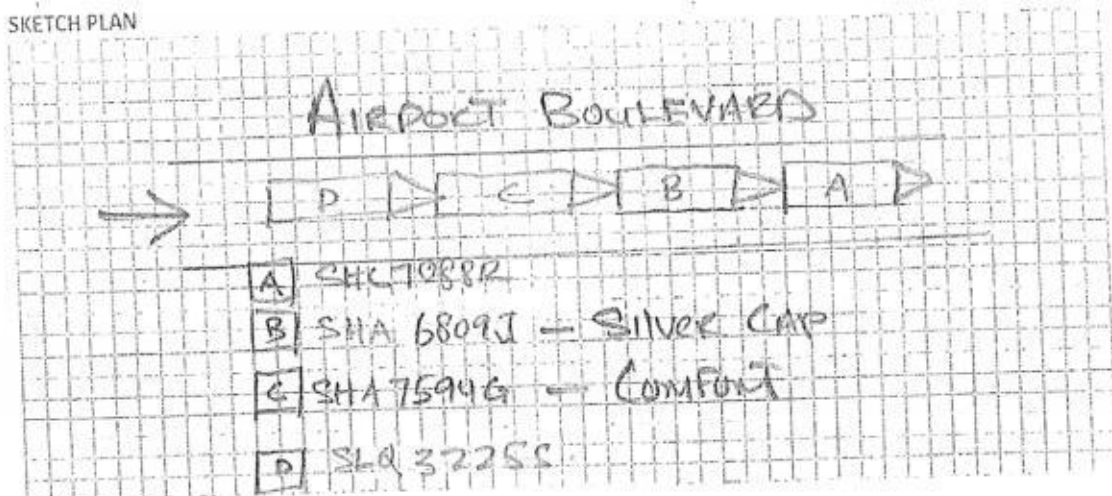 SKETCH PLAN
AIRPORT BOULEVARD
D C B A
A SHC7988R
B SHA 6809J - SILVER CAP
C SHA7594G - COMFORT
D SLQ3225S